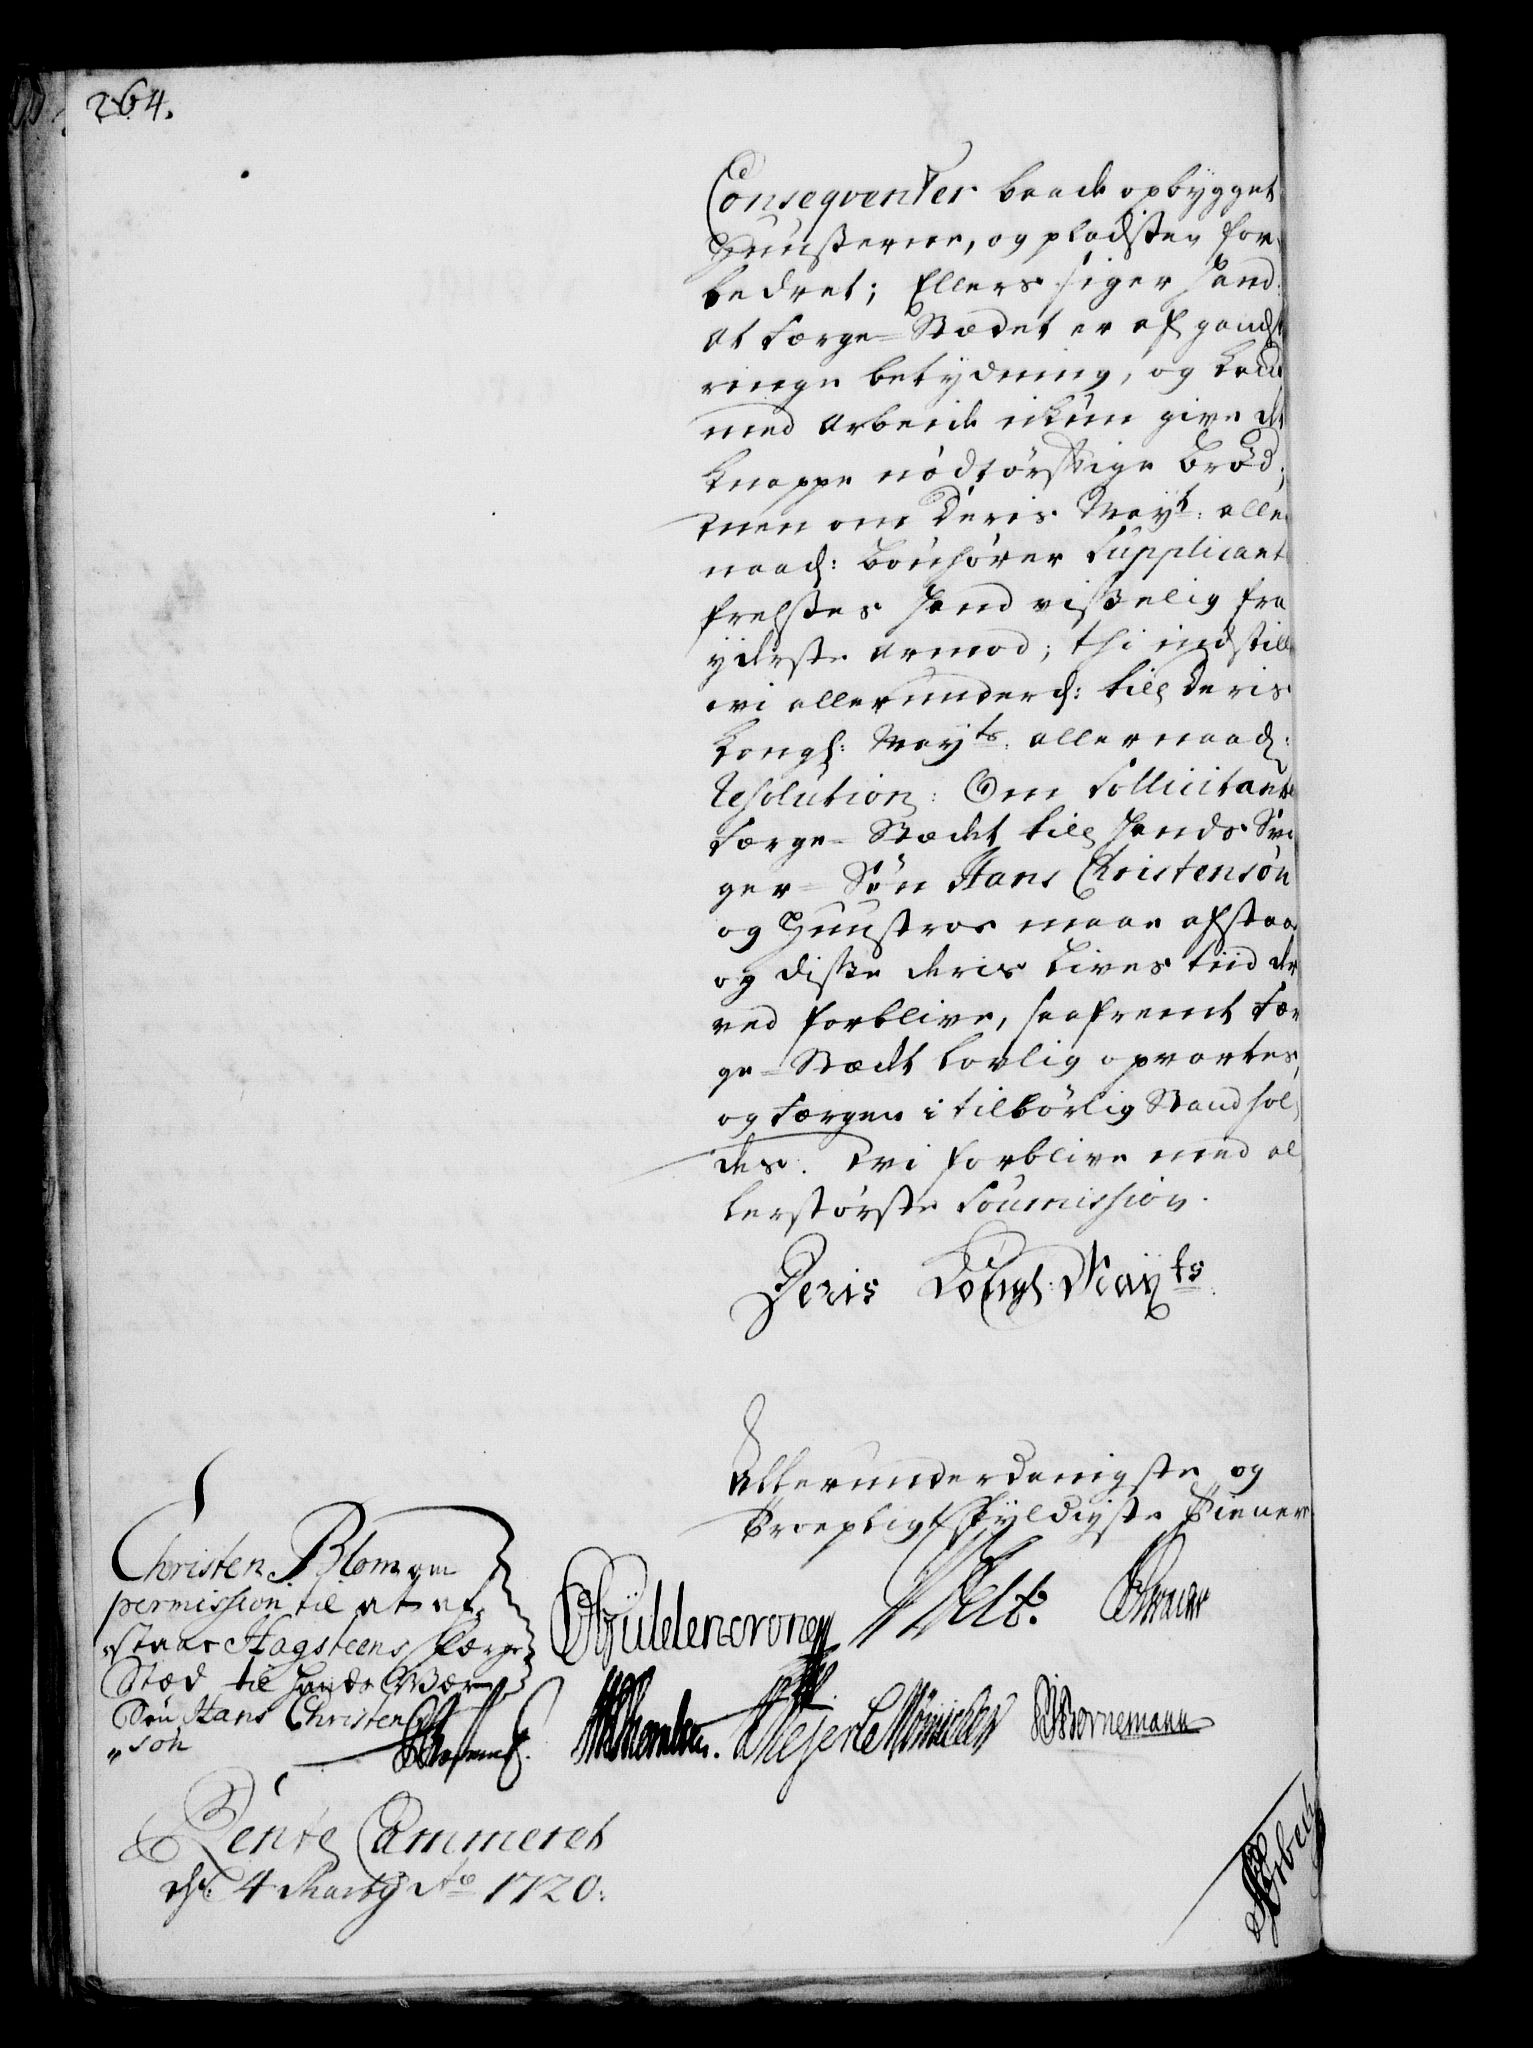 264.
Conseqventer baade opbygget
Huußerne, og pladsen for-
bedret; Ellers siger hand
at Færge-Stædet er af gandsk
ringe betydning, og kand
med arbeide ikun give det
knappe nødtørftige brød;
men om Deris Mayt: aller
naad: bønhører Supplicant
frelßes hand visselig fra
yderste armod; thi indstille
vi allerunderd: till Deris
Kongl: Mayts: allernaad:
Resolution: Om Sollicitanten
Færge-Stædet till hands Svi
ger-Søn Hans Christensøn
og Huustroe maae afstaae
og disse deris Lives tiid der
ved forblive, saafremt Fær
ge-Stædt lovlig opvartes,
og Færgen i tilbørlig Stand hol
des. Vi forblive med al
lerstørste Soumission.
Deris Kongl: Mayts
Allerunderdanigste og
Troepligtskyldigste Tiener
Christen Blom om
permission til at af,
"staae Hagsteens Færge
Stæd til hands Svær
Søn Hans Christen
"søn
CGüldencrone
Bornemann
Rente Cammeret
d: 4 Marty Ao 1720.